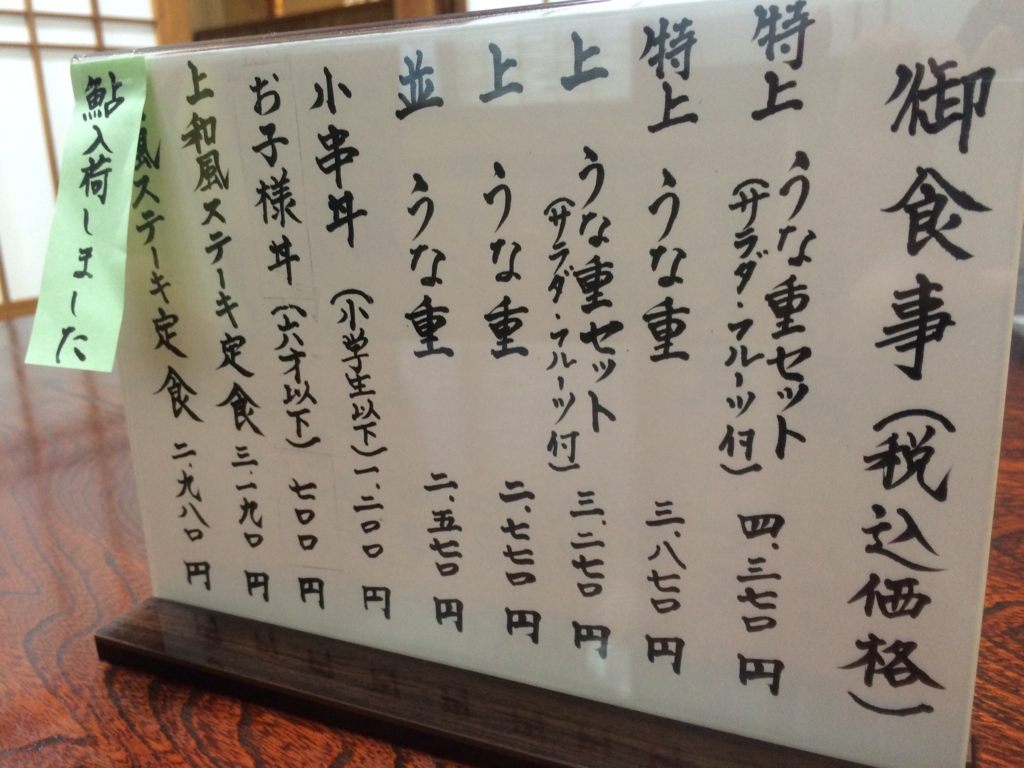 御食事(税込価格)
特上 うな重セット 四、三七〇円
(サラダ・フルーツ付)
特上 うな重 三、八七〇円
上 うな重セット 三、二七〇円
(サラダ・フルーツ付)
上 うな重 二、七七〇円
並 うな重 二、五七〇円
小串丼 (小学生以下) 一、二〇〇円
お子様丼 (六才以下) 七〇〇円
上和風ステーキ定食 三、一九〇円
風ステーキ定食 二、九八〇円
鮎入荷しました